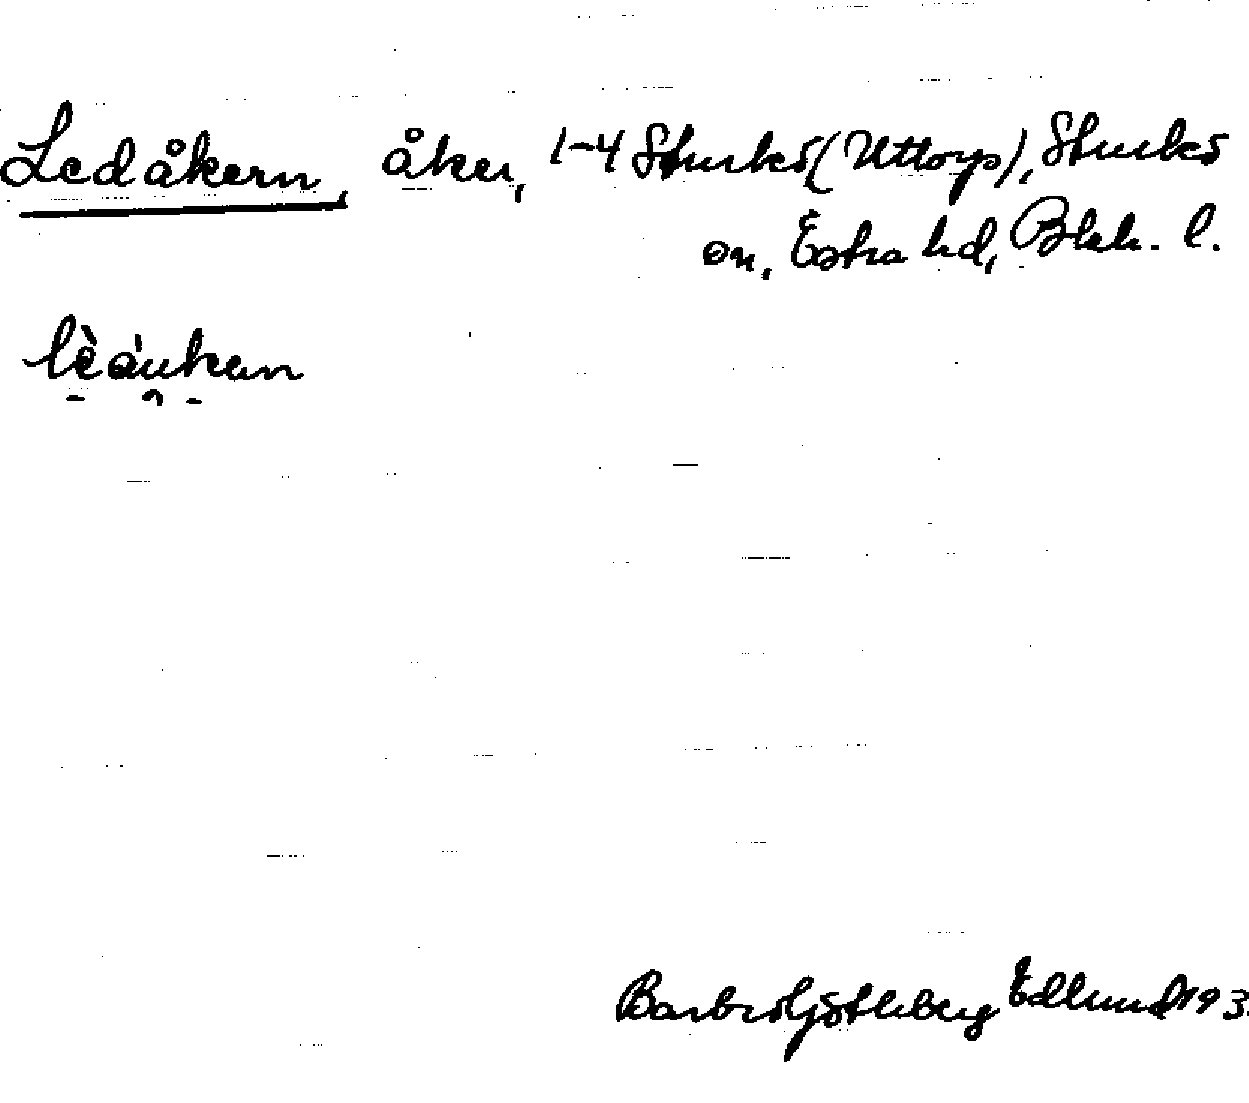 Ledåkern, åker, 1-4 Sturkö (Uttorp), Sturkö
sn, Östra hd, Blek. l.
lèáukan
Barbro Götleberg Edlund 193